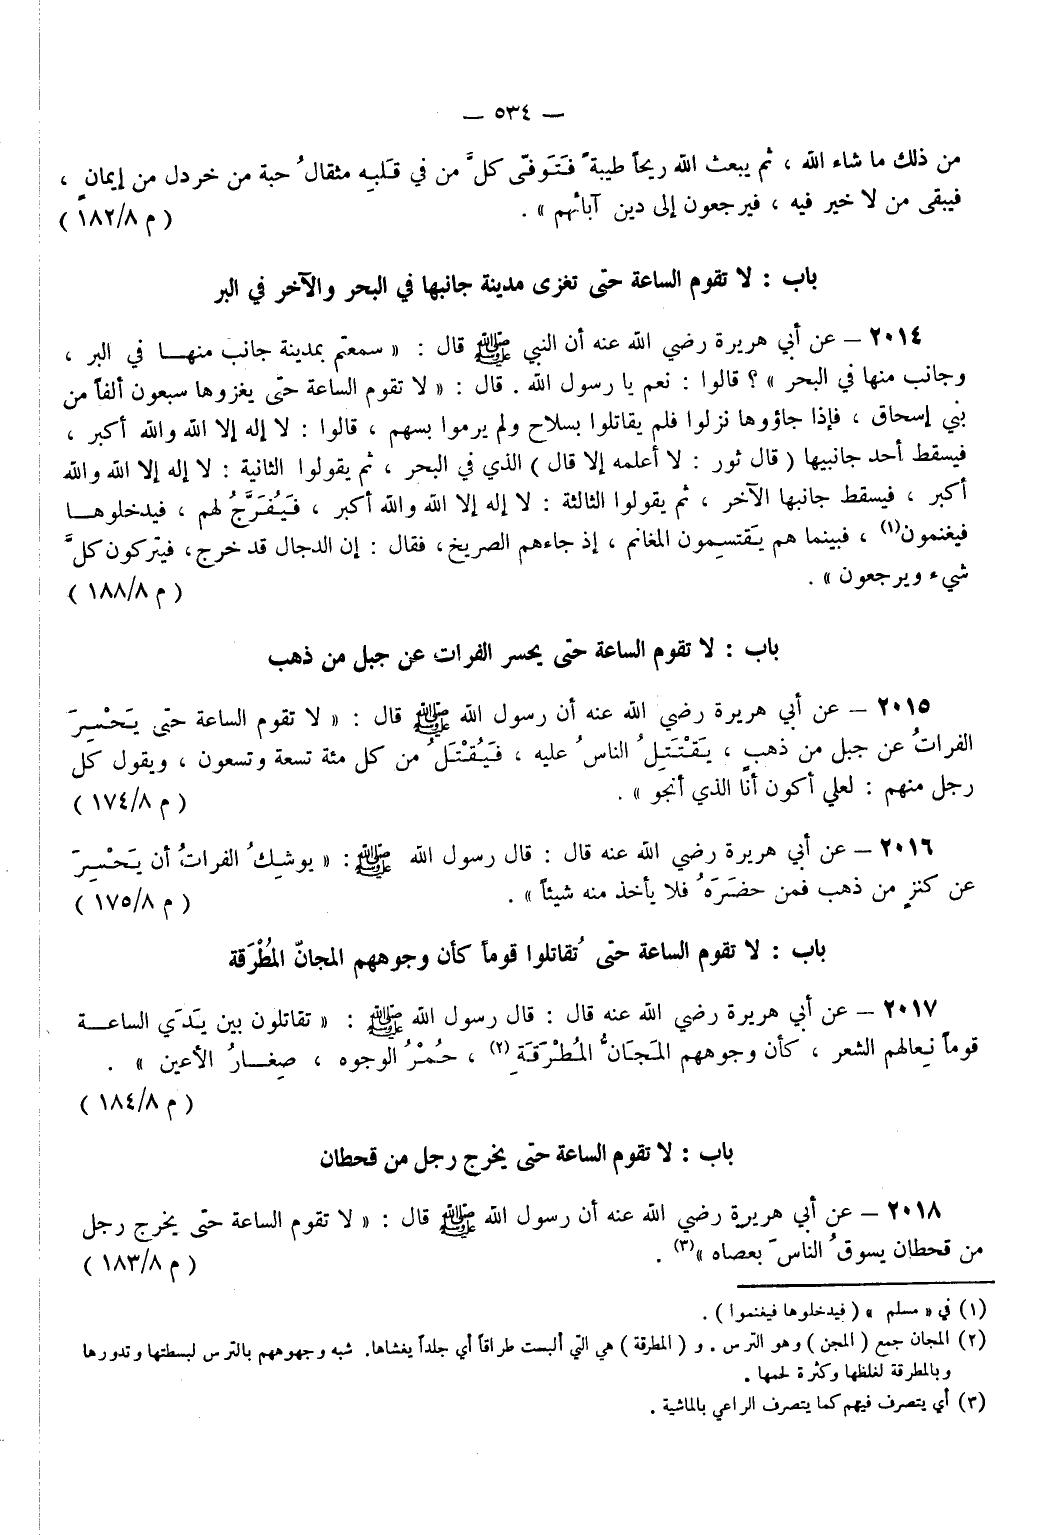 — ٥٣٤ —
من ذلك ما شاء الله ، ثم يبعث الله ريحاً طيبةً فَتَوَفّى كلَّ من في قلبِه مثقالُ حبة من خردل من إيمانٍ ،
فيبقى من لا خير فيه ، فيرجعون إلى دين آبائهم » . ( م ٨/‏١٨٢ )
باب : لا تقوم الساعة حتى تغزى مدينة جانبها في البحر والآخر في البر
٢٠١٤ — عن أبي هريرة رضي الله عنه أن النبي ﷺ قال : « سمعتم بمدينة جانب منهـا في البر ،
وجانب منها في البحر » ؟ قالوا : نعم يا رسول الله . قال : « لا تقوم الساعة حتى يغزوها سبعون ألفاً من
بني إسحاق ، فإذا جاؤوها نزلوا فلم يقاتلوا بسلاح ولم يرموا بسهم ، قالوا : لا إله إلا الله والله أكبر ،
فيسقط أحد جانبيها ( قال ثور : لا أعلمه إلا قال ) الذي في البحر ، ثم يقولوا الثانية : لا إله إلا الله والله
أكبر ، فيسقط جانبها الآخر ، ثم يقولوا الثالثة : لا إله إلا الله والله أكبر ، فَيُفَرَّجُ لهم ، فيدخلوهـا
فيغنمون(١) ، فبينما هم يَقتسِمون المغانم ، إذ جاءهم الصريخ، فقال : إن الدجال قد خرج، فيتركون كلَّ
شيء ويرجعون » . ( م ٨/‏١٨٨ )
باب : لا تقوم الساعة حتى يحسر الفرات عن جبل من ذهب
٢٠١٥ — عن أبي هريرة رضي الله عنه أن رسول الله ﷺ قال : « لا تقوم الساعة حتى يَحْسِرَ
الفراتُ عن جبل من ذهبٍ ، يَقْتَتِلُ الناسُ عليه ، فَيُقْتَلُ من كل مئة تسعة وتسعون ، ويقول كل
رجل منهم : لعلي أكون أنا الذي أنجو » . ( م ٨/‏١٧٤ )
٢٠١٦ — عن أبي هريرة رضي الله عنه قال : قال رسول الله ﷺ : « يوشِكُ الفراتُ أن يَحْسِرَ
عن كنزٍ من ذهب فمن حضَرَهُ فلا يأخذ منه شيئاً » . ( م ٨/‏١٧٥ )
باب : لا تقوم الساعة حتى تُقاتلوا قوماً كأن وجوههم المجانّ المُطْرَقة
٢٠١٧ — عن أبي هريرة رضي الله عنه قال : قال رسول الله ﷺ : « تقاتلون بين يَدَي الساعـة
قوماً نِعالهم الشعر ، كأن وجوههم المَجَانُّ المُطْرَقَةِ (٢) ، حُمْرُ الوجوه ، صِغـارُ الأعين » .
( م ٨/‏١٨٤ )
باب : لا تقوم الساعة حتى يخرج رجل من قحطان
٢٠١٨ — عن أبي هريرة رضي الله عنه أن رسول الله ﷺ قال : « لا تقوم الساعة حتى يخرج رجل
من قحطان يسوقُ الناسَ بعصاه »(٣) . ( م ٨/‏١٨٣ )
(١) في « مسلم » ( فيدخلوها فيغنموا ) .
(٢) المجان جمع ( المجن ) وهو الترس . و ( المطرقة ) هي التي ألبست طراقاً أي جلداً يغشاها. شبه وجهوههم بالترس لبسطتها وتدورها
وبالمطرقة لغلظها وكثرة لحمها .
(٣) أي يتصرف فيهم كما يتصرف الراعي بالماشية .